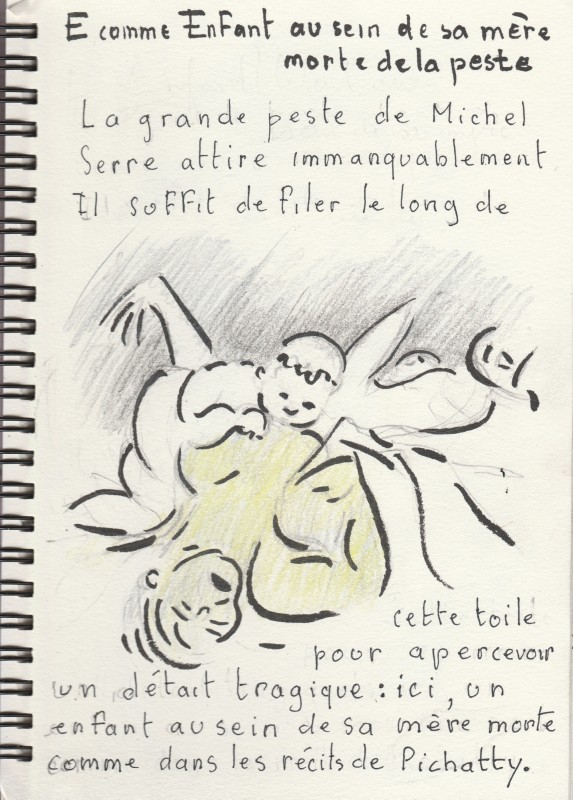 E comme Enfant au sein de sa mère
morte de la peste
La grande peste de Michel
Serre attire immanquablement
Il suffit de filer le long de
cette toile
pour apercevoir
un détail tragique : ici, un
enfant au sein de sa mère morte
comme dans les récits de Pichatty.